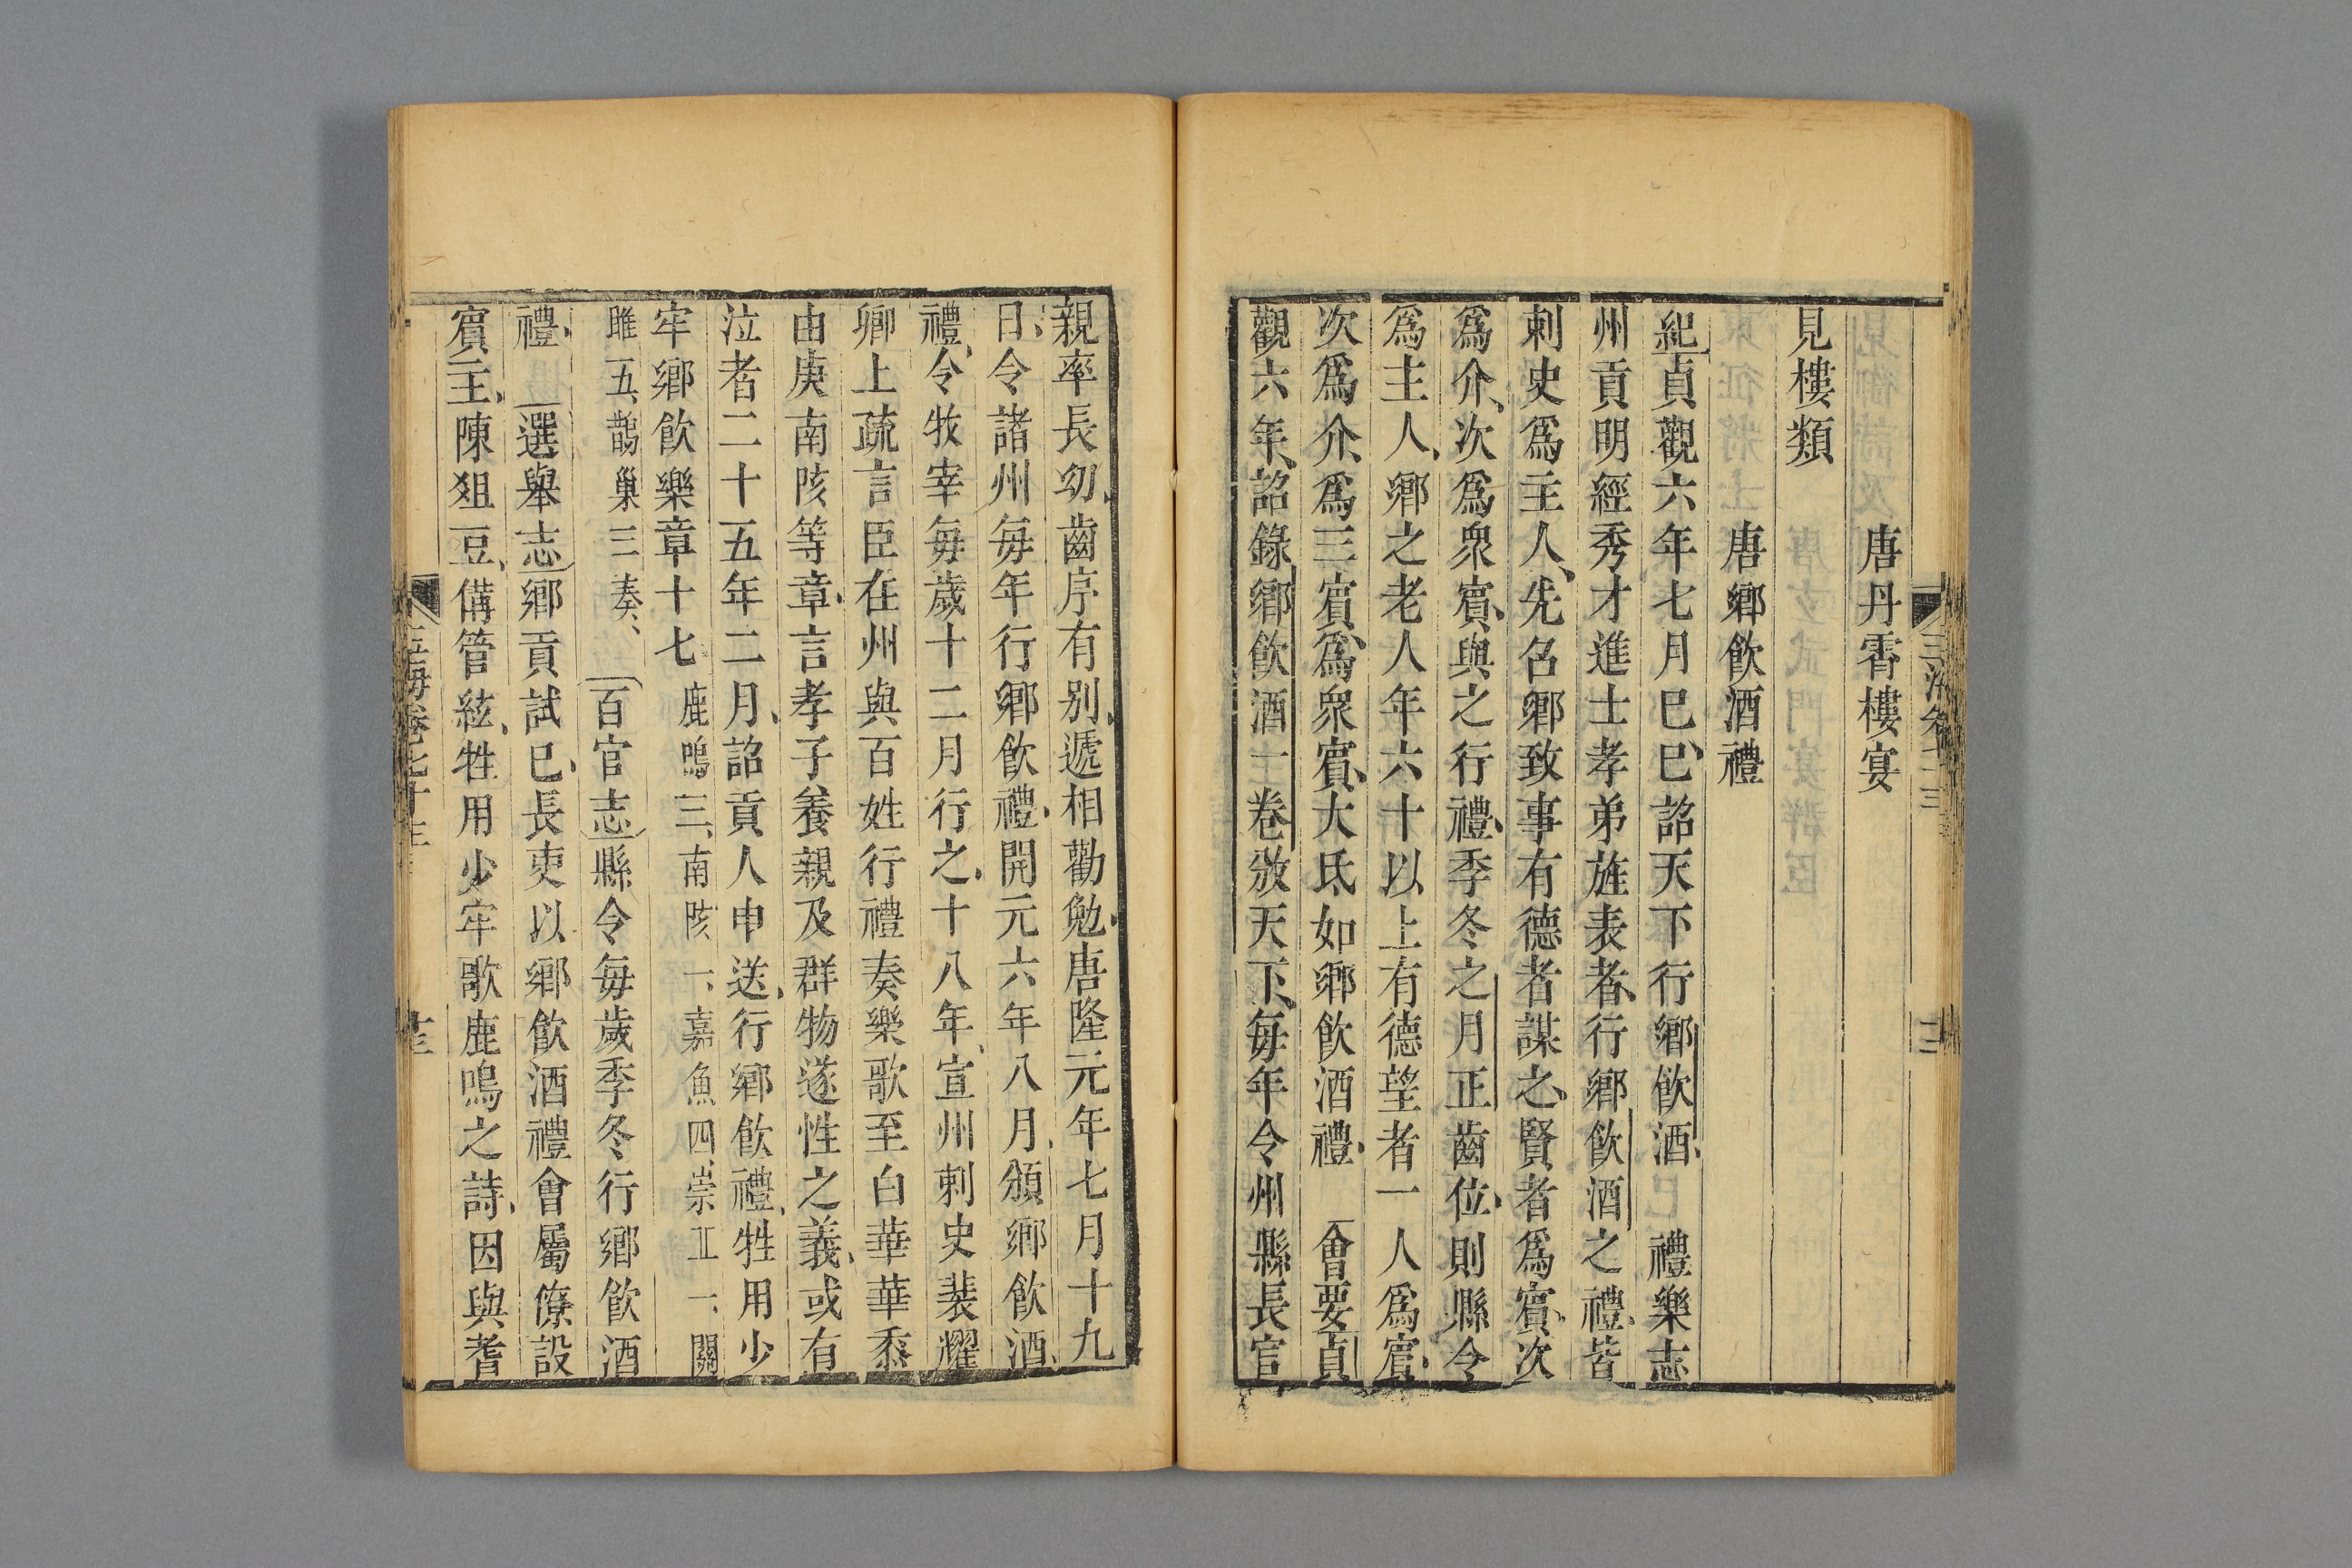 唐丹霄樓宴
見樓類
唐鄉飲酒禮
紀貞觀六年七月己巳詔天下行鄉飲酒 禮樂志
州貢明經秀才進士孝弟旌表者行鄉飲酒之禮皆
刺史爲主人先召鄉致事有德者謀之賢者爲賓次
爲介次爲衆賓與之行禮季冬之月正齒位則縣令
爲主人鄉之老人年六十以上有德望者一人爲賓
次爲介爲三賓爲衆賓大氐如鄉飲酒禮 會要貞
觀六年詔錄鄉飲酒一卷頒天下每年令州縣長官
親率長幼齒序有别遞相勸勉唐隆元年七月十九
日令諸州每年行鄉飲禮開元六年八月頒鄉飲酒
禮令牧宰每歲十二月行之十八年宣州刺史裴耀
卿上疏言臣在州與百姓行禮奏樂歌至白華華黍
由庚南陔等章言孝子養親及群物遂性之義或有
泣者二十五年二月詔貢人申送行鄉飲禮牲用少
牢鄉飲樂章十七 鹿鳴三南陔一嘉魚四崇丘一關
雎五鵲巢三奏 百官志縣令每歲季冬行鄉飲酒
禮 選舉志鄉貢試已長吏以鄉飲酒禮會屬僚設
賓主陳俎豆備管絃牲用少牢歌鹿鳴之詩因與耆
玉海卷七十三
十三